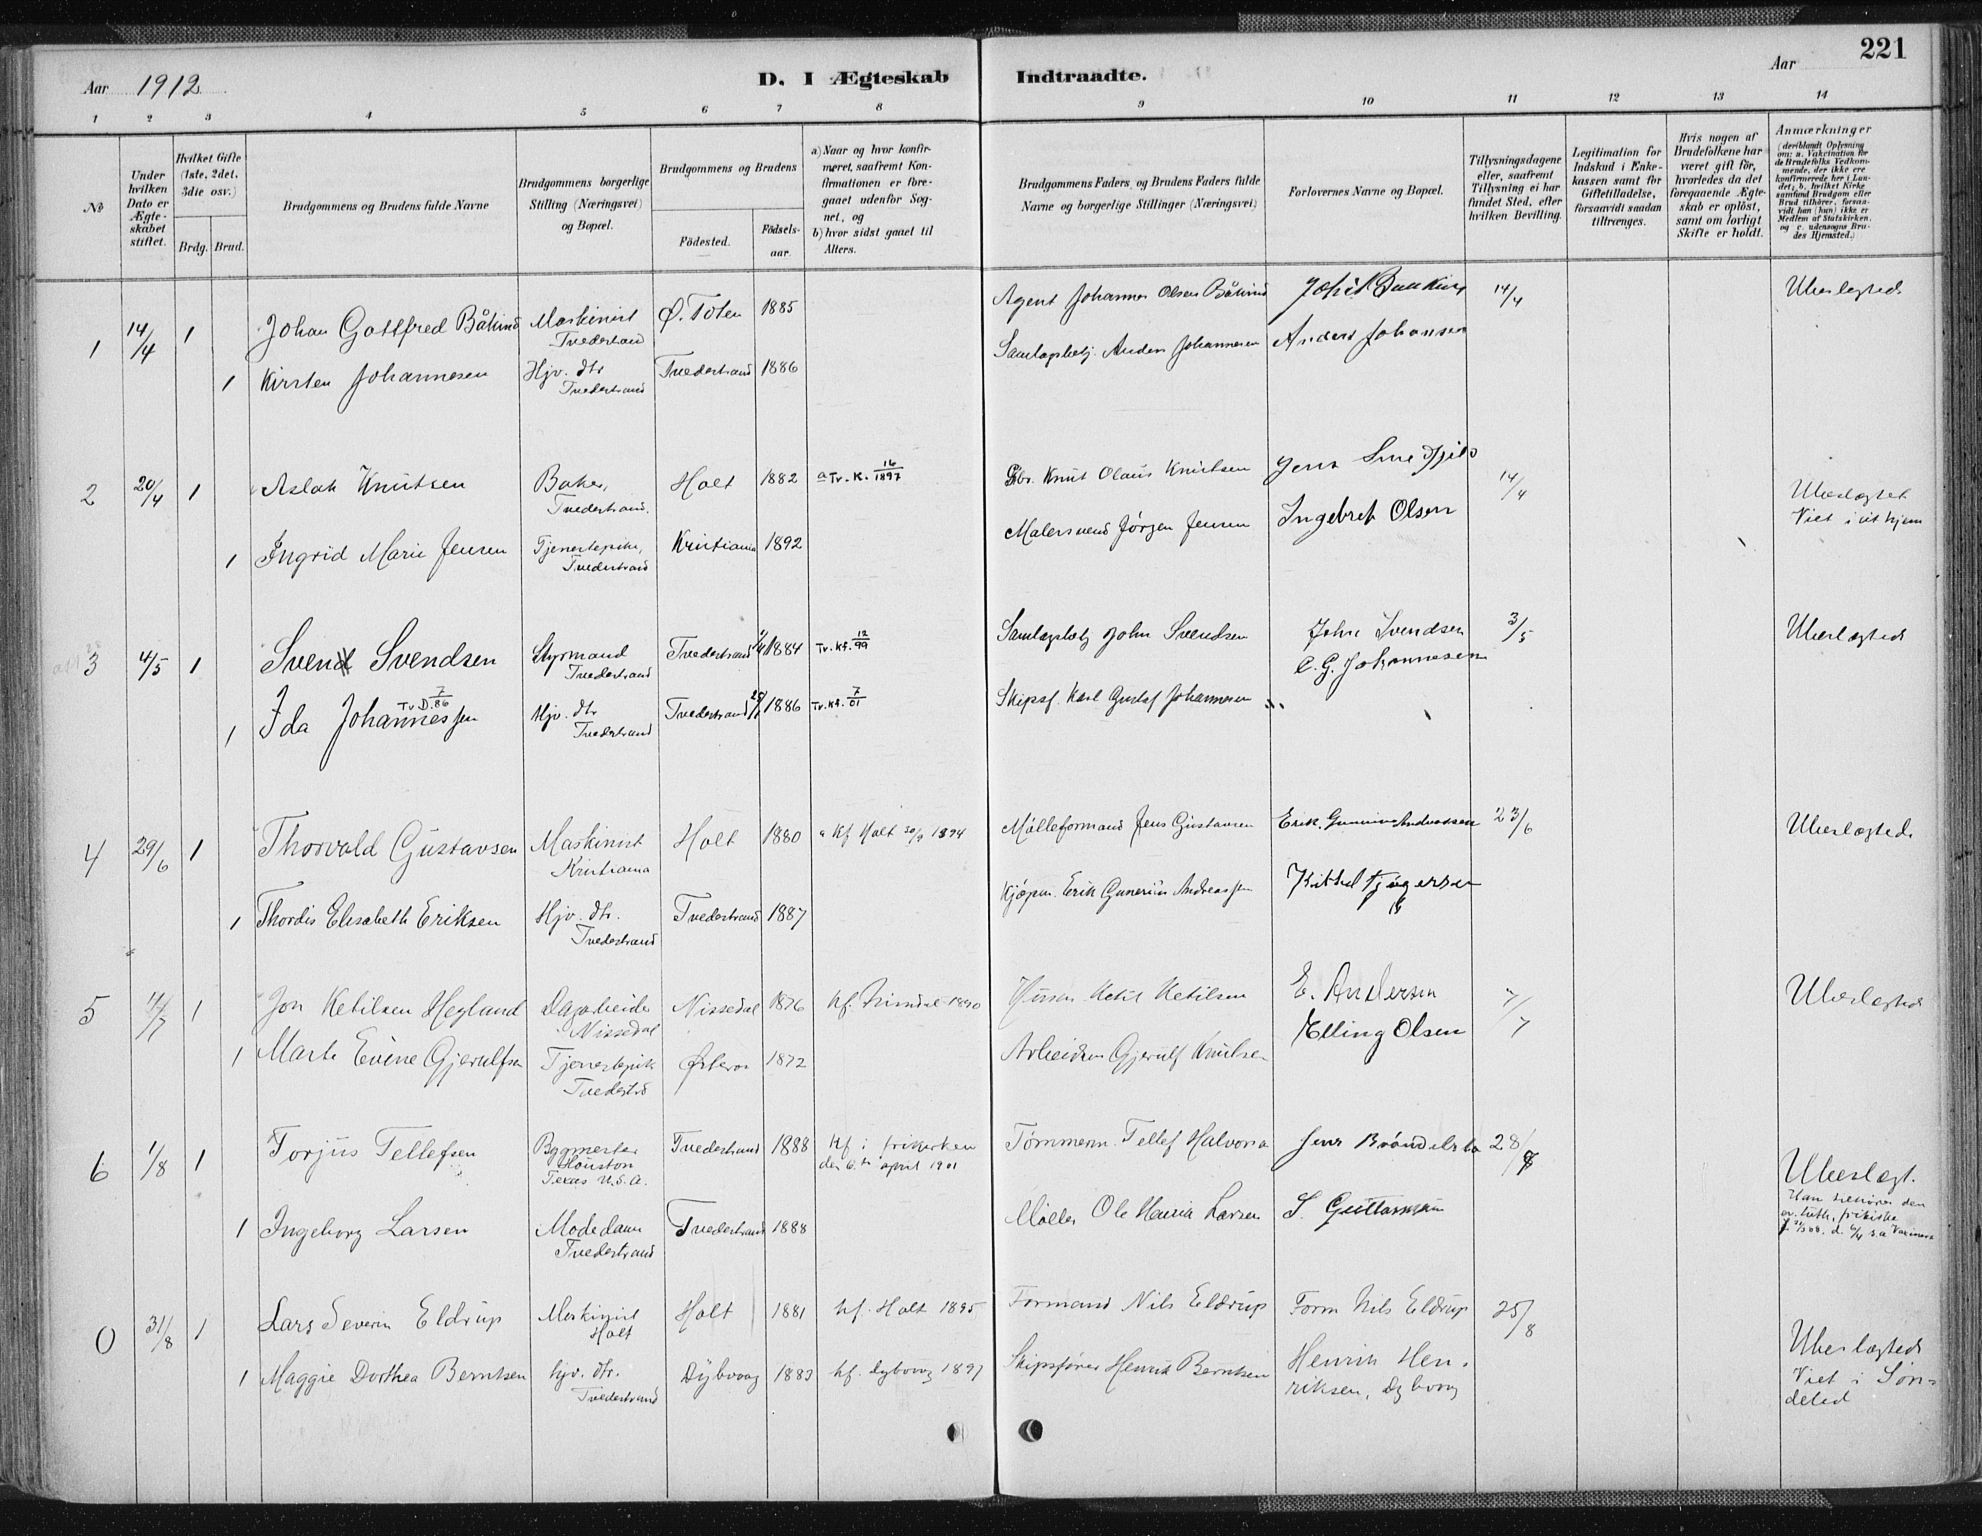 221
Aar 1912
D. I Ægteskab Indtraadte.
Aar
1 2 3 4 5 6 7 8 9 10 11 12 13 14
No
Under hvilken Dato er Ægteskabet stiftet.
Hvilket Gifte (1ste, 2det, 3die osv.)
Brdg. Brud.
Brudgommens og Brudens fulde Navne
Brudgommens borgerlige Stilling (Næringsvei) og Bopæl.
Brudgommens og Brudens
Födested.
Födselsaar.
a) Naar og hvor konfirmeret, saafremt Konfirmationen er foregaaet udenfor Sognet, og
b) hvor sidst gaaet til Alters.
Brudgommens Faders og Brudens Faders fulde Navne og borgerlige Stillinger (Næringsvei)
Forlovernes Navne og Bopæl.
Tillysningsdagene eller, saafremt Tillysning ei har fundet Sted, efter hvilken Bevilling.
Legitimation for Indskud i Enkekassen samt for Giftetilladelse, forsaavidt saadan tiltrænges.
Hvis nogen af Brudefolkene har været gift för, hvorledes da det foregaaende Ægteskab er oplöst, samt om lovligt Skifte er holdt.
Anmærkninger
(deriblandt Oplysning om: a. Vakcination for de Brudefolks Vedkommende, der ikke ere konfirmerede her i Landet; b. hvilket Kirkesamfund Brudgom eller Brud tilhörer, forsaavidt han (hun) ikke er Medlem af Statskirken, og c. udensogns Brudes Hjemsted.)
1 14/4 1 Johan Gottfred Båkind Maskinist Tvedestrand Ø. Toten 1885 Agent Johannes Olsen Båkind 14/4 Ubeslægtede
1 Kirsten Johannesen Hjv. dtr Tvedestrand Tvedestrand 1886 Samlagsbetj. Anders Johannesen Anders Johansen
2 20/4 1 Aslak Knutsen Baker, Tvedestrand. Holt 1882 a Tv. K. 16/1897 Gbr. Knut Olaus Knutsen Jens 14/4 Ubeslægtet Viet i sit hjem
1 Ingrid Marie Jensen Tjenestepike, Tvedestrand Kristiania 1892 Malersvend Jørgen Jensen Ingebret Olsen
3 4/5 1 Svend Svendsen Styrmand Tvedestrand Tvedestrand 1884 Tv. Kf. 12/99 Samlagsbetj John Svendsen John Svendsen 3/5 Ubeslægtede
1 Ida Johannessen Tv. D. 7/86 Hjv. dtr Tvedestrand Tvedestrand 1886 Tv. Kf. 7/01 Skipsf. Karl Gustaf Johannesen C. G. Johannesen
4 29/6 1 Thorvald Gustavsen Maskinist Kristiania Holt 1880 a Kf Holt 30/9 1894 Mølleformand Jens Gustavsen Erik Gunerius Andreassen 23/6 Ubeslægtede
1 Thordis Elisabeth Eriksen Hjv. dtr. Tvedestrand Tvedestrand 1887 Kjøpm. Erik Gunerius Andreassen
5 11/7 1 Jon Ketilsen Hegland Dagarbeider Nissedal Nissedal 1876 Kf. 1890 Ketil Ketilsen E. Andersen 7/7 Ubeslægtede
1 Marte Evine Gjerulfsen Tjenestepike Tvedestrd 1872 Arbeidsm Gjerulf Knutsen Elling Olsen
6 1/8 1 Torjus Tellefsen Bygmester Houston Texas U.S.A. Tvedestrand 1888 Kf i frikirken den 6. te april 1901 Tømmerm. Tellef Halvorsen Jens 28/ Ubeslægt. Han tilhører den ev. luth. frikirke
1 Ingeborg Larsen Modedame Tvedestrand Tvedestrand 1888 Møller Ole Henrik Larsen
0 31/8 1 Lars Severin Eldrup Maskinist Holt Holt 1881 kf. Holt 1895 Formand Nils Eldrup Form Nils Eldrup 25/8 Ubeslægtede
1 Maggie Dorthea Berntsen hjv. dtr. Tvedestrand Dybvaag 1883 kf. Dybvaag 1897 Skipsfører Henrik Berntsen Henrik Henriksen, Dybvaag Viet i Søndeled